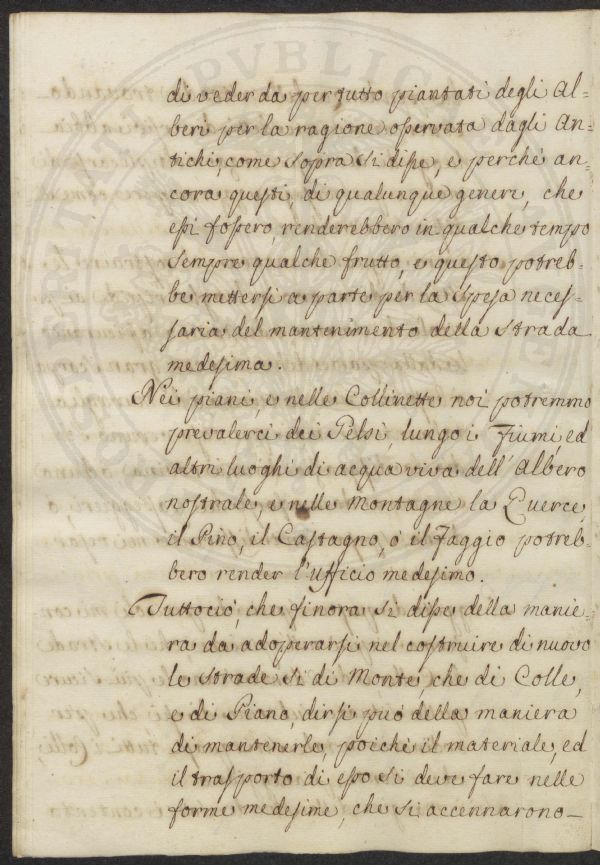 di veder da per tutto piantati degli Al=
beri per la ragione osservata dagli An=
tichi, come sopra si disse, e perchè an=
cora questi, di qualunque genere, che
essi fossero, renderebbero in qualche tempo
sempre qualche frutto, e questo potreb=
be mettersi a parte per la spesa neces=
saria del mantenimento della strada
medesima.
Nei piani, e nelle Collinette noi potremmo
prevalerci dei Pelsi, lungo i Fiumi ed
altri luoghi di acqua viva dell'Albero
nostrale, e nelle Montagne la Querce,
il Pino, il Castagno, o il Faggio potreb=
bero render l'Ufficio medesimo.
Tuttociò, che finora si disse della manie=
ra da adoperarsi nel costruire di nuovo
le strade si di Monte, che di Colle,
e di Piano, dirsi può della maniera
di mantenerle, poichè il materiale, ed
il trasporto di esso si deve fare nelle
forme medesime, che si accennarono_